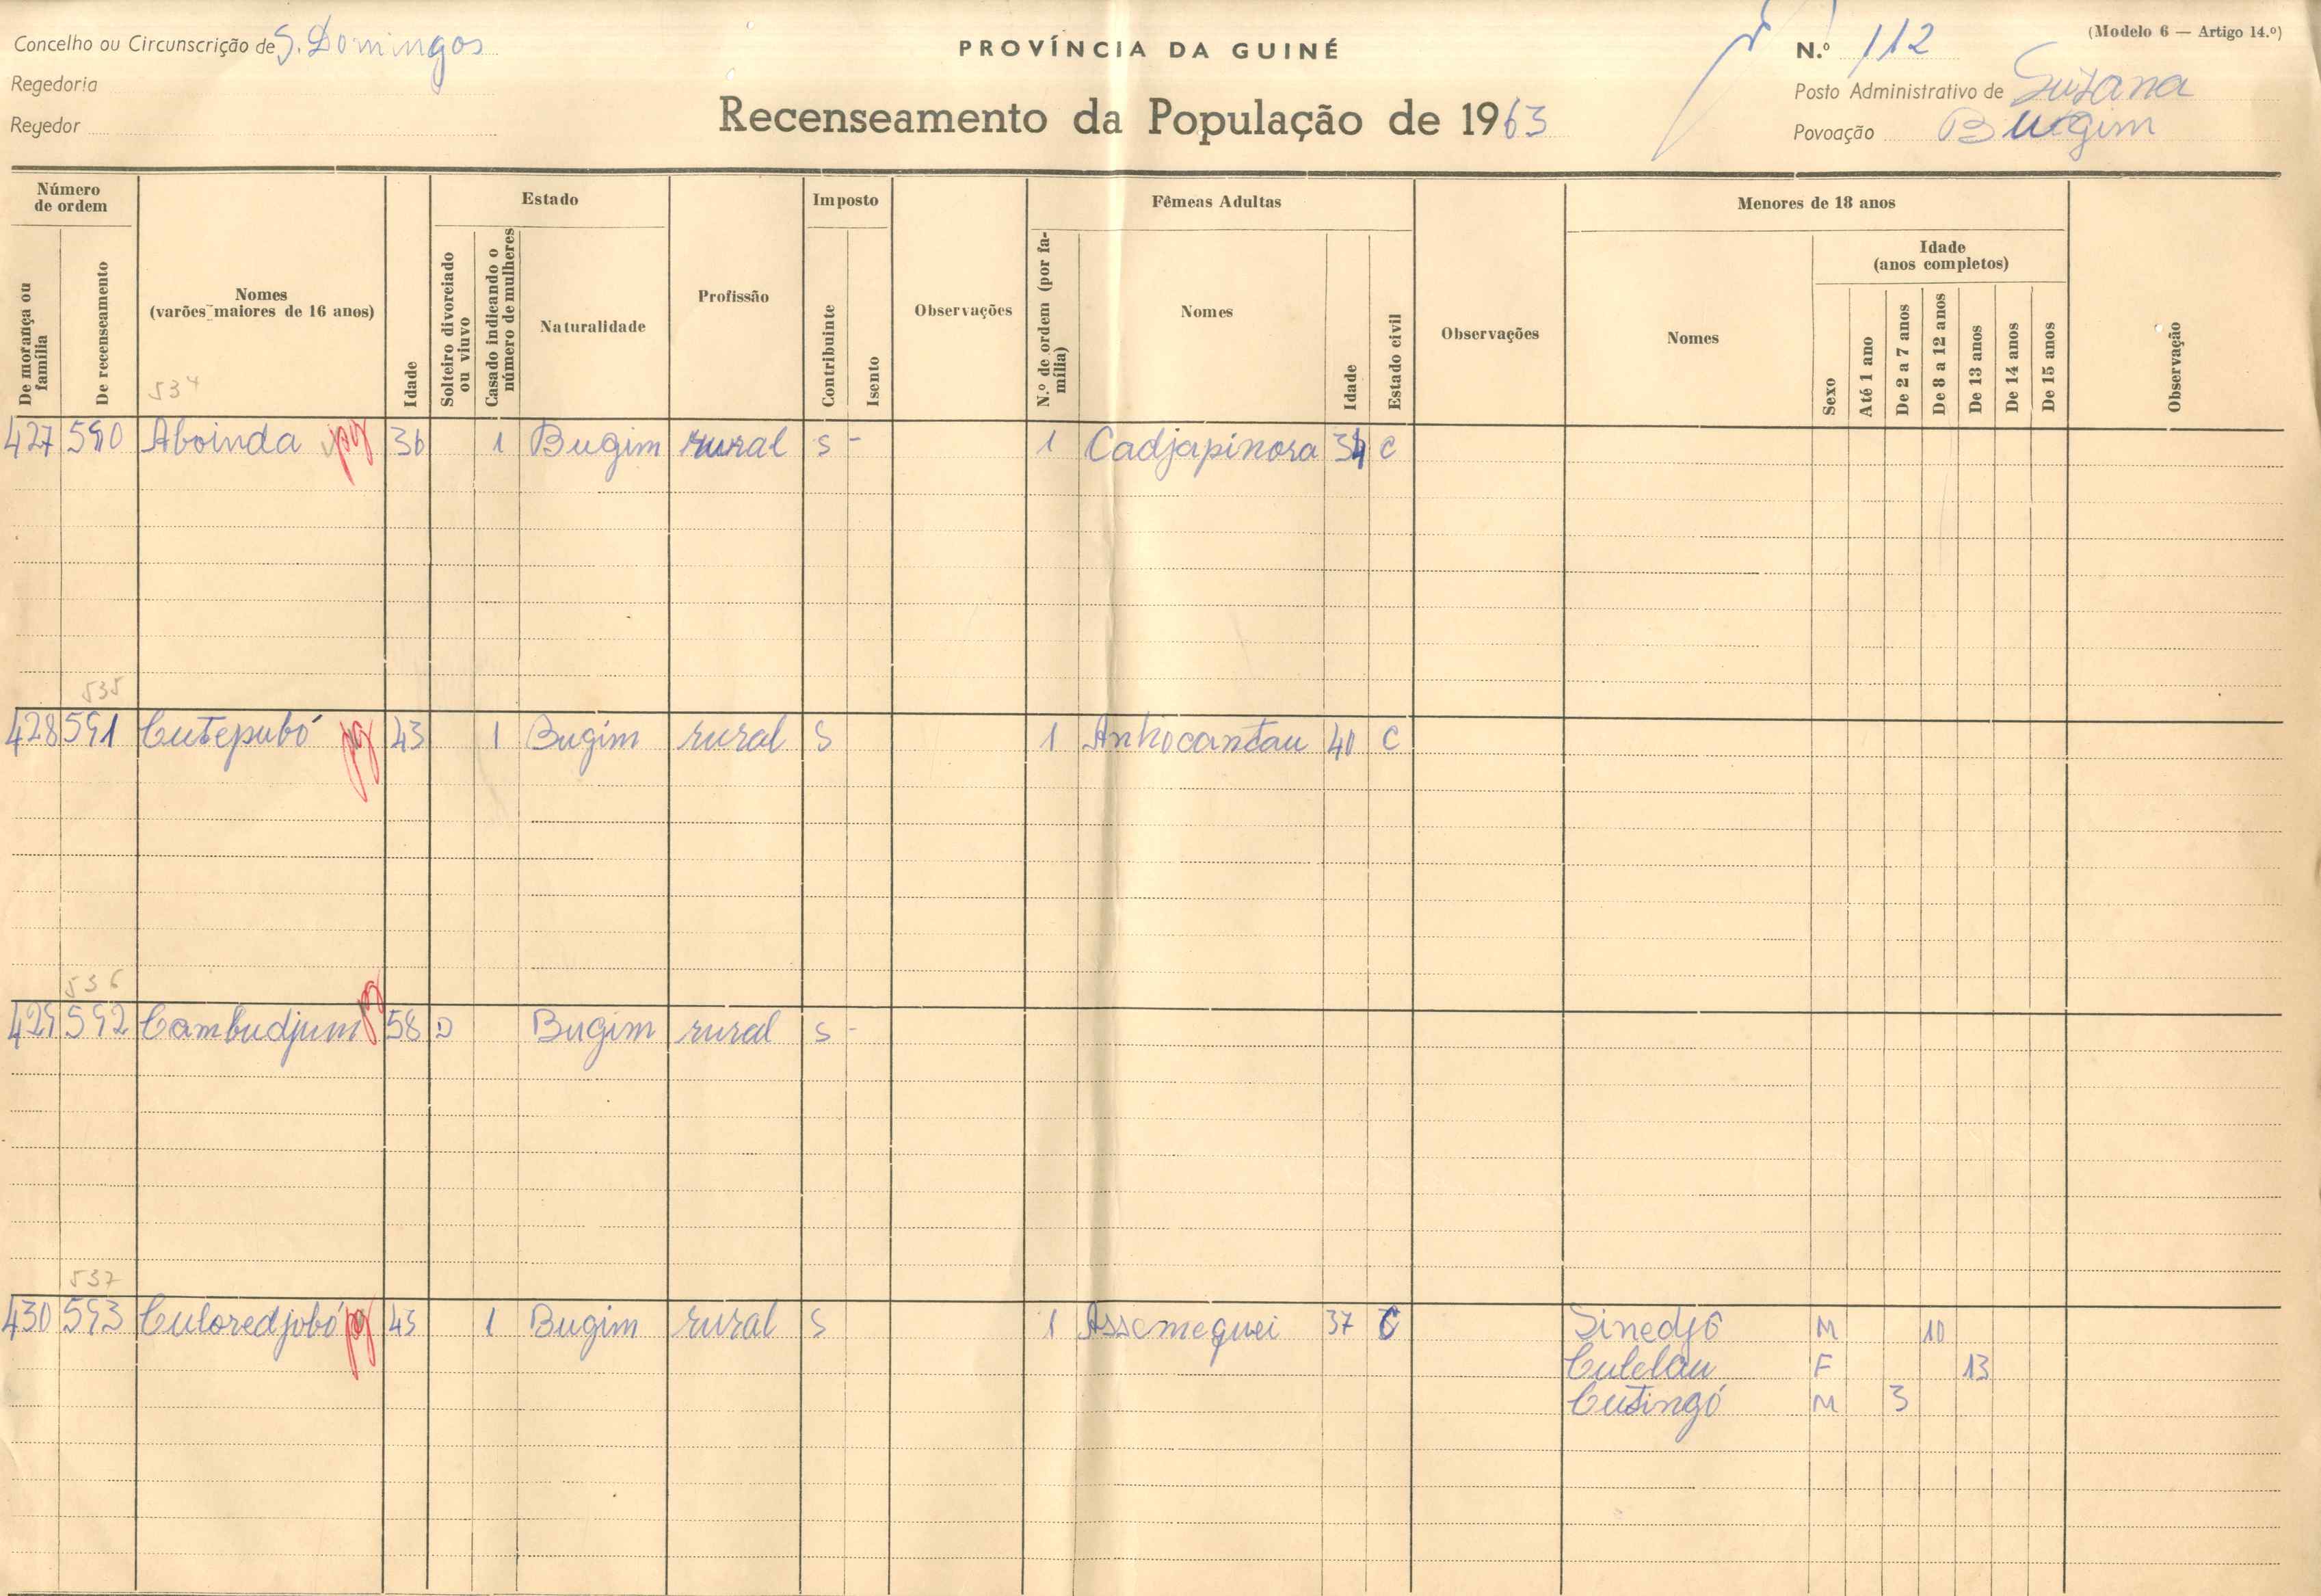 Concelho ou Circunscrição de S. Domingos
PROVÍNCIA DA GUINÉ
N.º 112
(Modelo 6 — Artigo 14.º)
Regedoria
Posto Administrativo de Suzana
Regedor
Recenseamento da População de 1963
Povoação Bugim
Número de ordem
De morança ou família
De recenseamento
Nomes
(varões maiores de 16 anos)
534
Idade
Estado
Solteiro divorciado ou viuvo
Casado indicando o número de mulheres
Naturalidade
Profissão
Imposto
Contribuinte
Isento
Observações
Fêmeas Adultas
N.º de ordem (por família)
Nomes
Idade
Estado civil
Observações
Menores de 18 anos
Nomes
Idade
(anos completos)
Sexo
Até 1 ano
De 2 a 7 anos
De 8 a 12 anos
De 13 anos
De 14 anos
De 15 anos
Observação
427 590 Aboinda pg 36 1 Bugim rural S - 1 Cadjapinora 34 C
535
428 591 Cutepubó pg 43 1 Bugim rural S 1 Anhocantau 40 C
536
429 592 Cambudjum pg 58 D Bugim rural S -
537
430 593 Culoredjobó pg 45 1 Bugim rural S 1 Assemequei 37 C Sinedjó M 10
Culelau F 13
Cutingó M 3